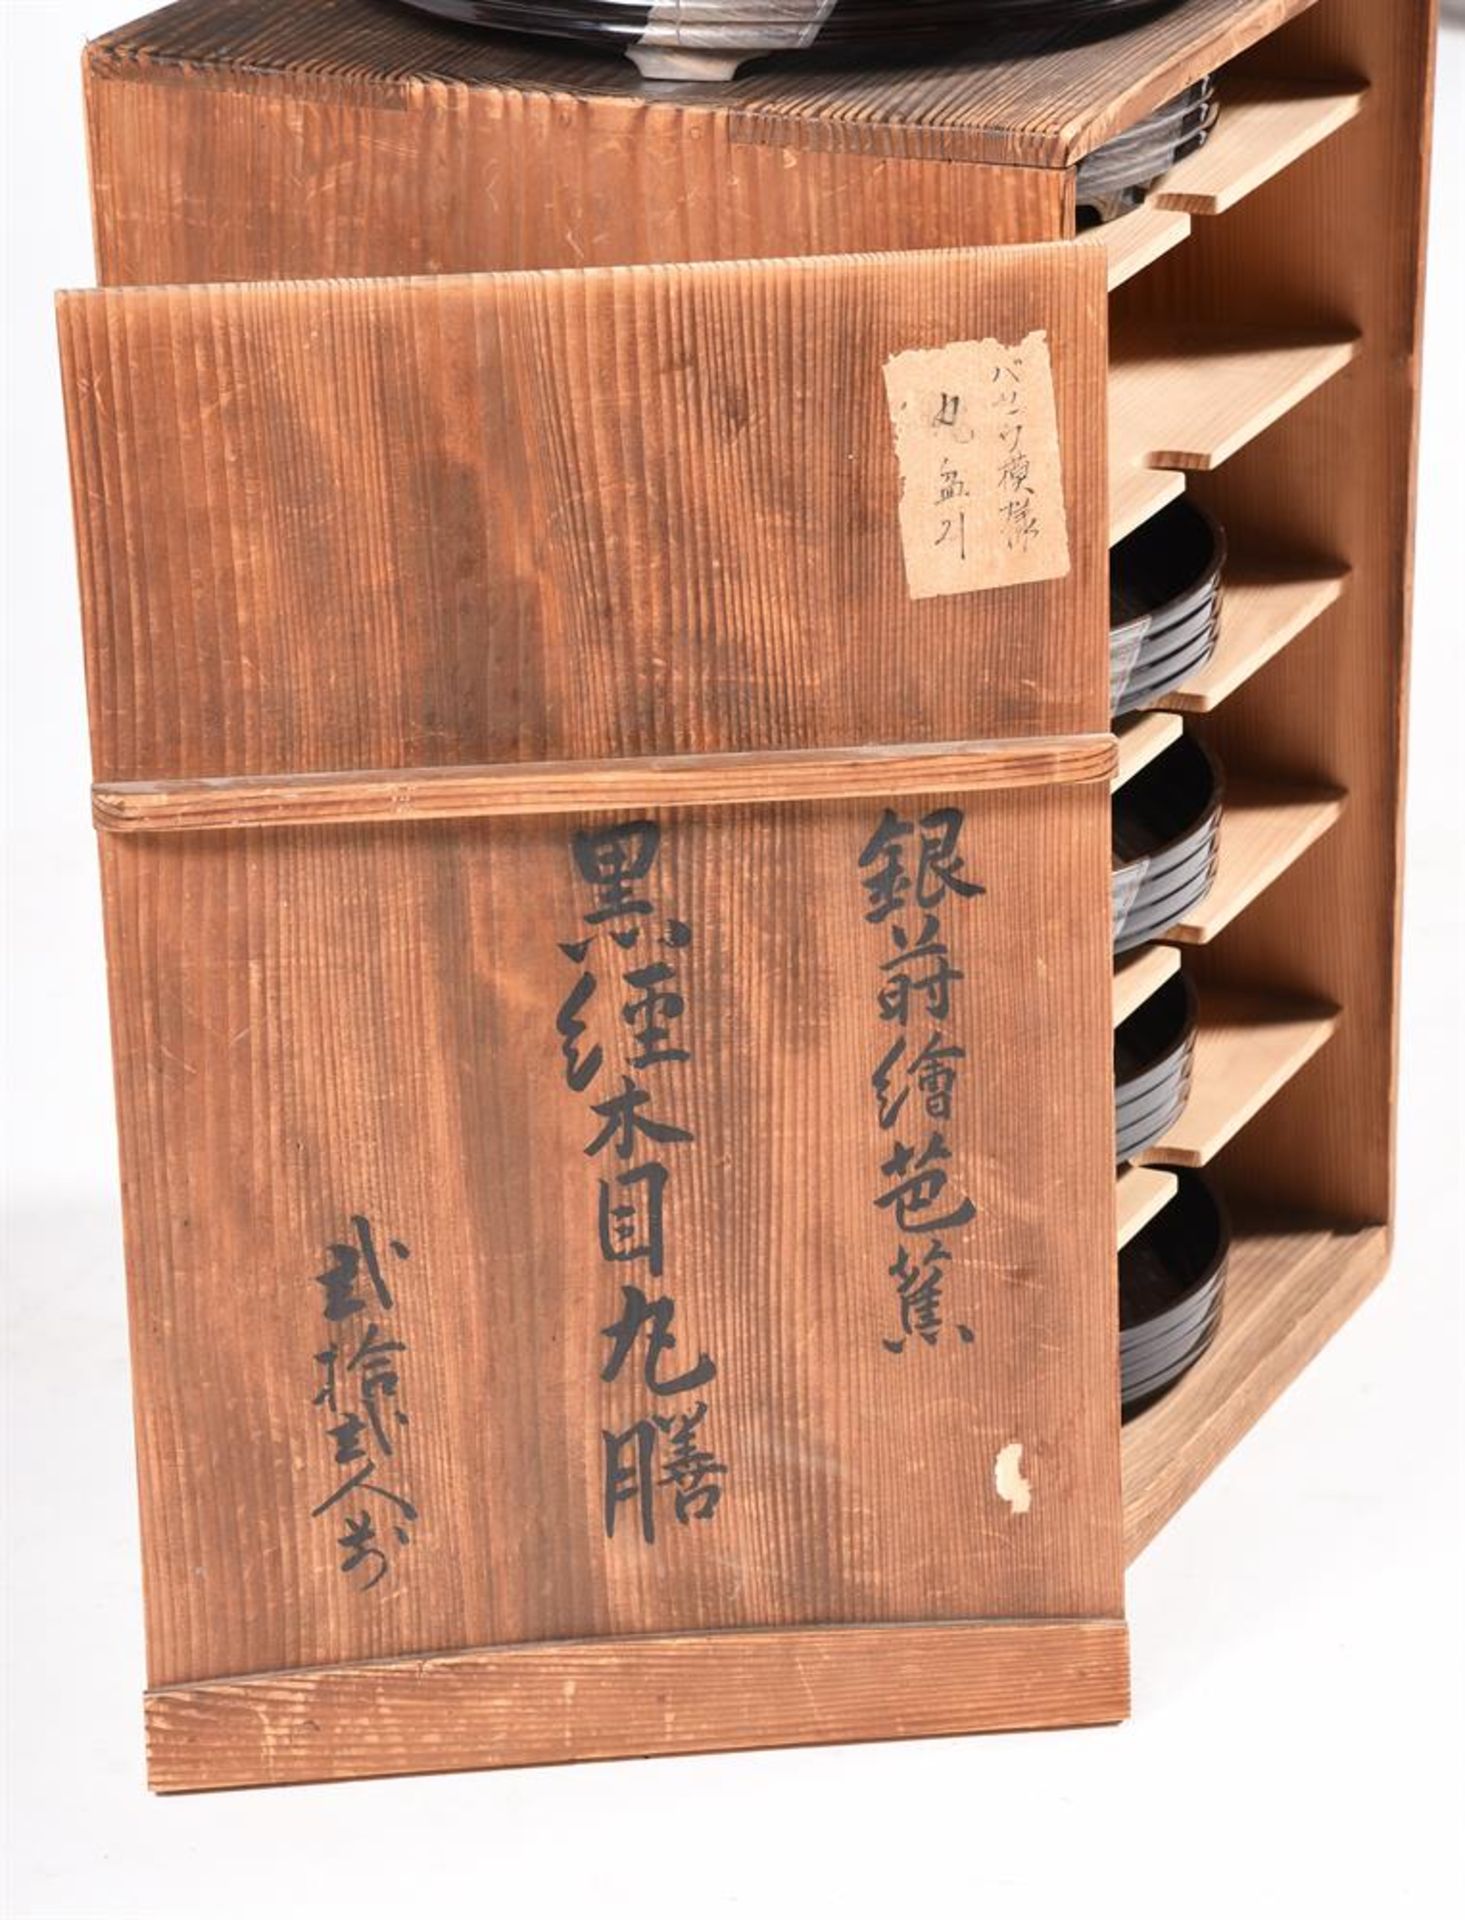 バセウ模様
丸盆
銀蒔繪芭蕉
黒経木目丸膳
弐拾弐人前